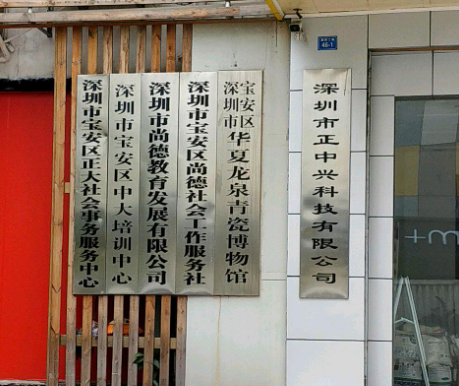 深圳市宝安区正大社会事务服务中心
深圳市宝安区中大培训中心
深圳市尚德教育发展有限公司
深圳市宝安区尚德社会工作服务社
深圳市宝安区华夏龙泉青瓷博物馆
深圳市正中兴科技有限公司
48-1
m+